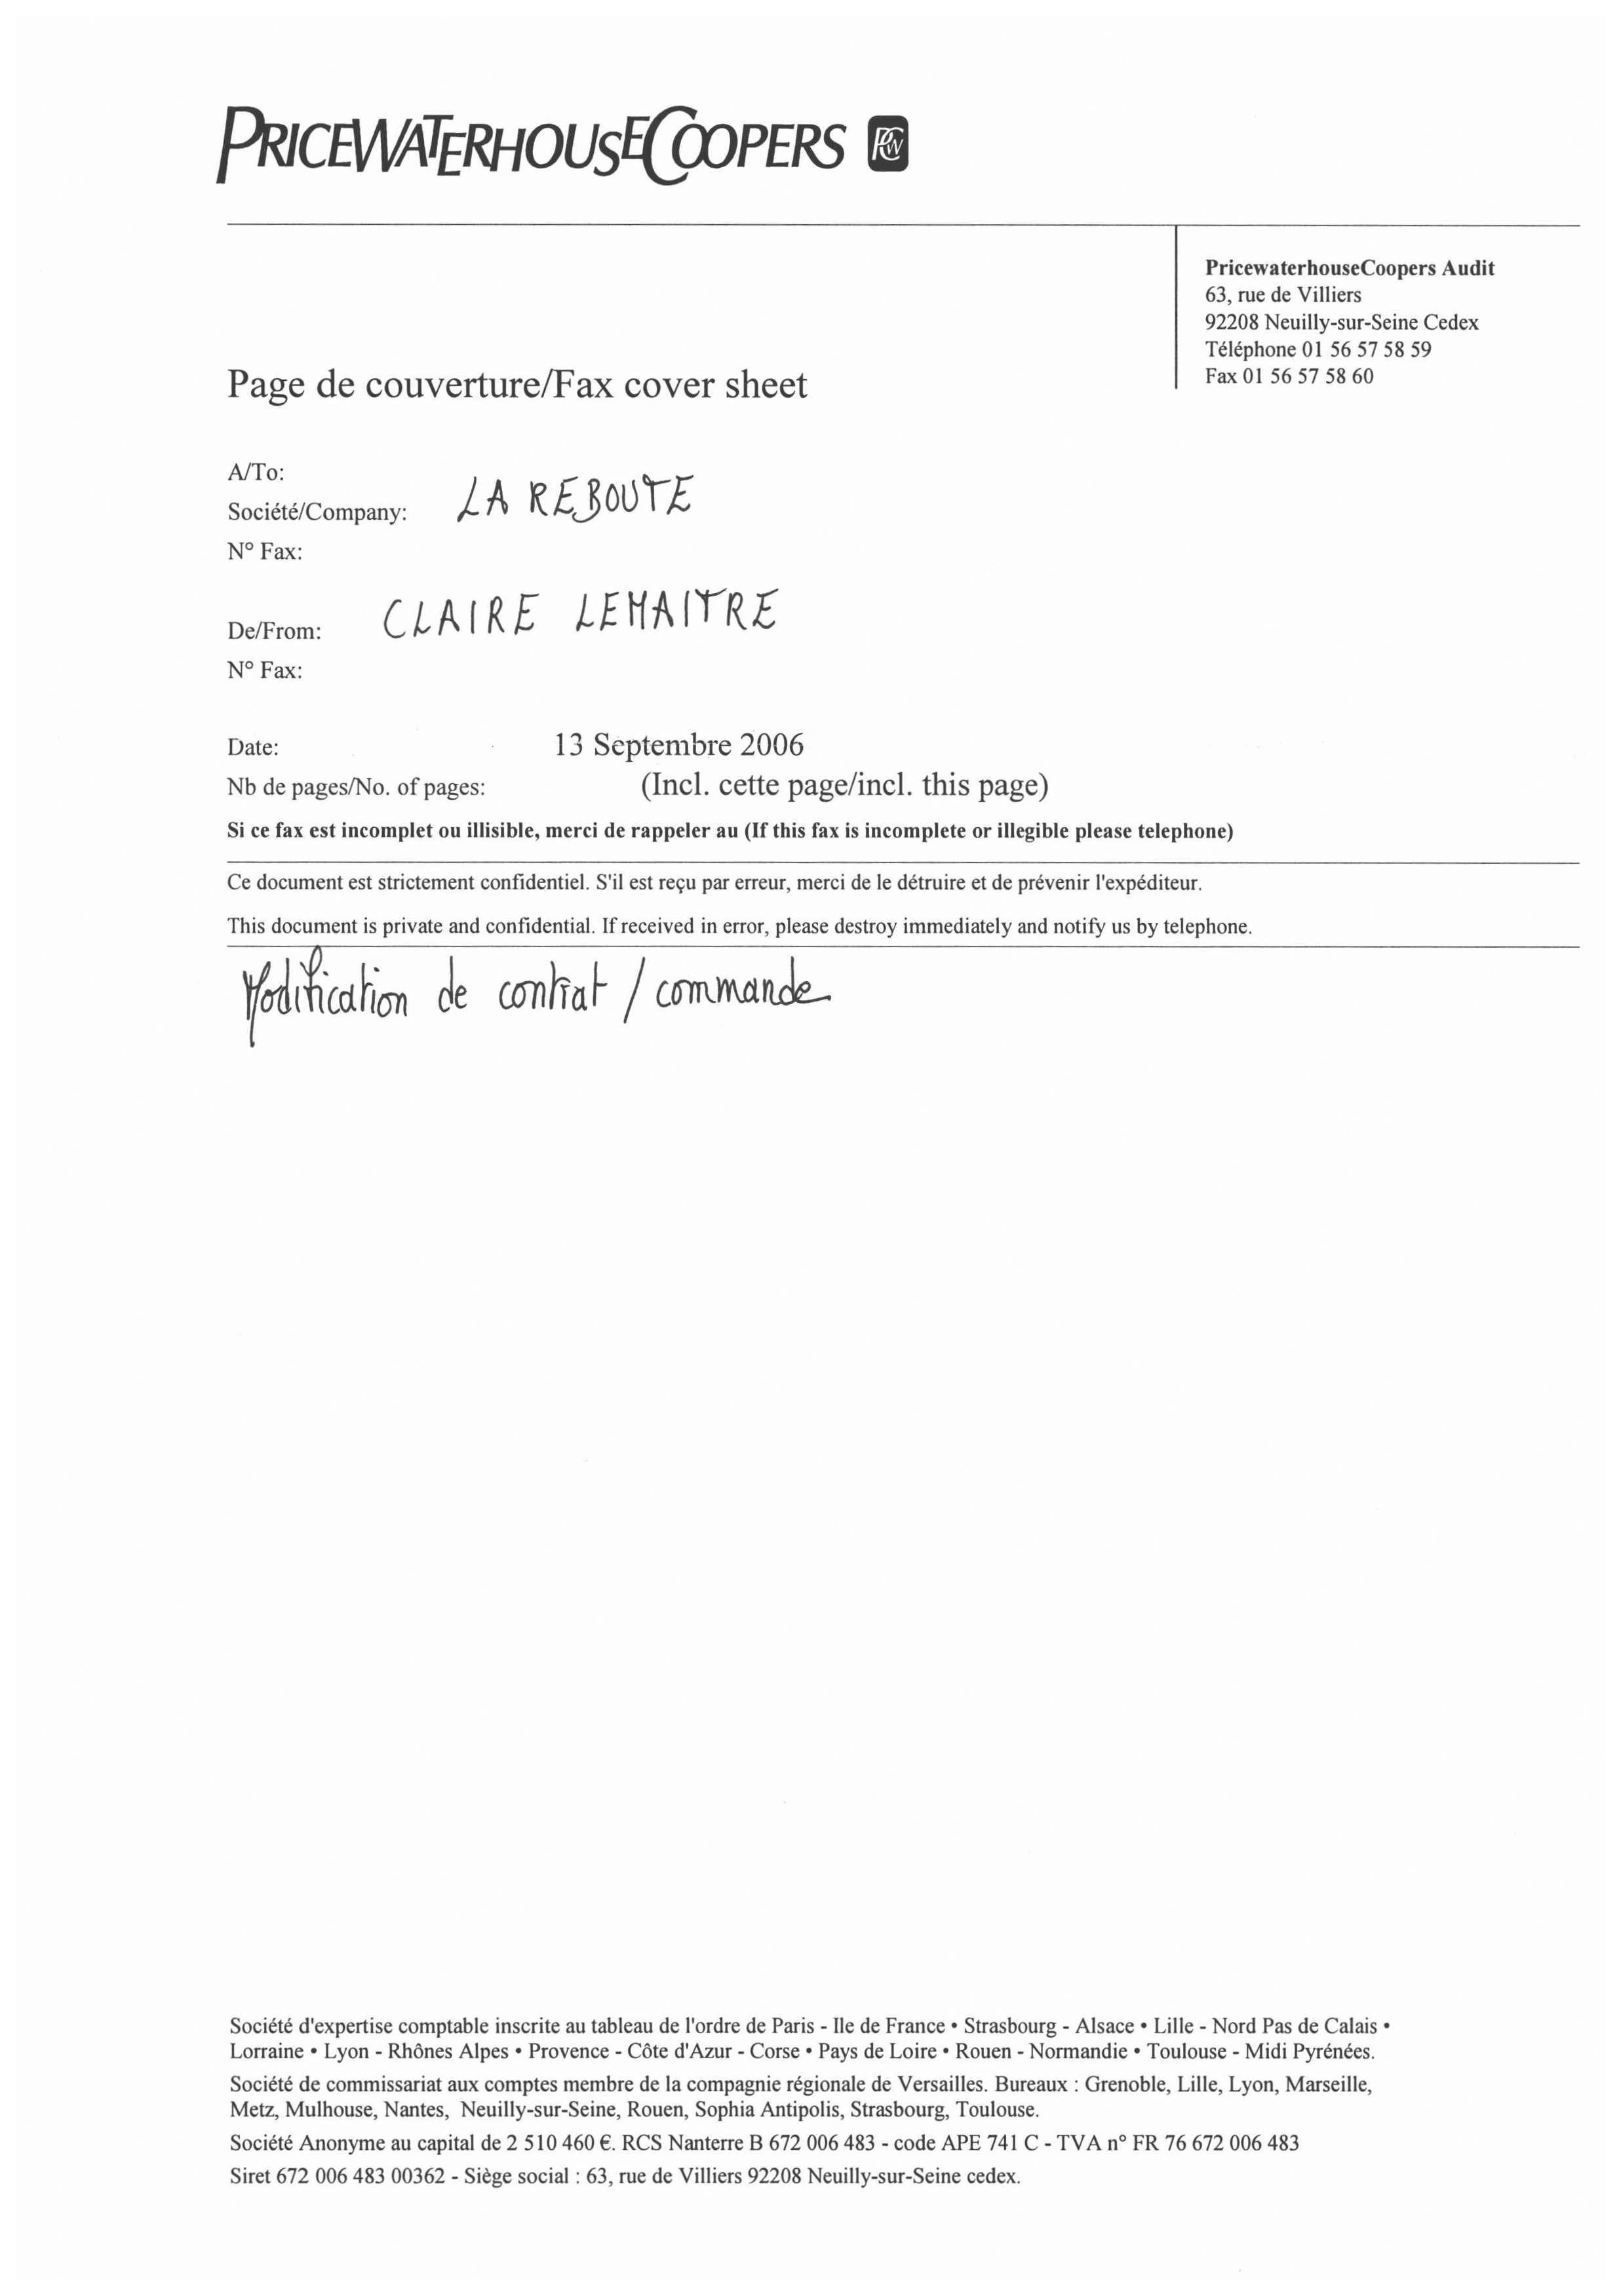 PRICEWATERHOUSECOOPERS PCW
PricewaterhouseCoopers Audit
63, rue de Villiers
92208 Neuilly-sur-Seine Cedex
Téléphone 01 56 57 58 59
Fax 01 56 57 58 60
Page de couverture/Fax cover sheet
A/To:
Société/Company: LA REBOUTE
N° Fax:
De/From: CLAIRE LEMAITRE
N° Fax:
Date: 13 Septembre 2006
Nb de pages/No. of pages: (Incl. cette page/incl. this page)
Si ce fax est incomplet ou illisible, merci de rappeler au (If this fax is incomplete or illegible please telephone)
Ce document est strictement confidentiel. S'il est reçu par erreur, merci de le détruire et de prévenir l'expéditeur.
This document is private and confidential. If received in error, please destroy immediately and notify us by telephone.
Modification de contrat / commande
Société d'expertise comptable inscrite au tableau de l'ordre de Paris - Ile de France • Strasbourg - Alsace • Lille - Nord Pas de Calais •
Lorraine • Lyon - Rhônes Alpes • Provence - Côte d'Azur - Corse • Pays de Loire • Rouen - Normandie • Toulouse - Midi Pyrénées.
Société de commissariat aux comptes membre de la compagnie régionale de Versailles. Bureaux : Grenoble, Lille, Lyon, Marseille,
Metz, Mulhouse, Nantes, Neuilly-sur-Seine, Rouen, Sophia Antipolis, Strasbourg, Toulouse.
Société Anonyme au capital de 2 510 460 €. RCS Nanterre B 672 006 483 - code APE 741 C - TVA n° FR 76 672 006 483
Siret 672 006 483 00362 - Siège social : 63, rue de Villiers 92208 Neuilly-sur-Seine cedex.